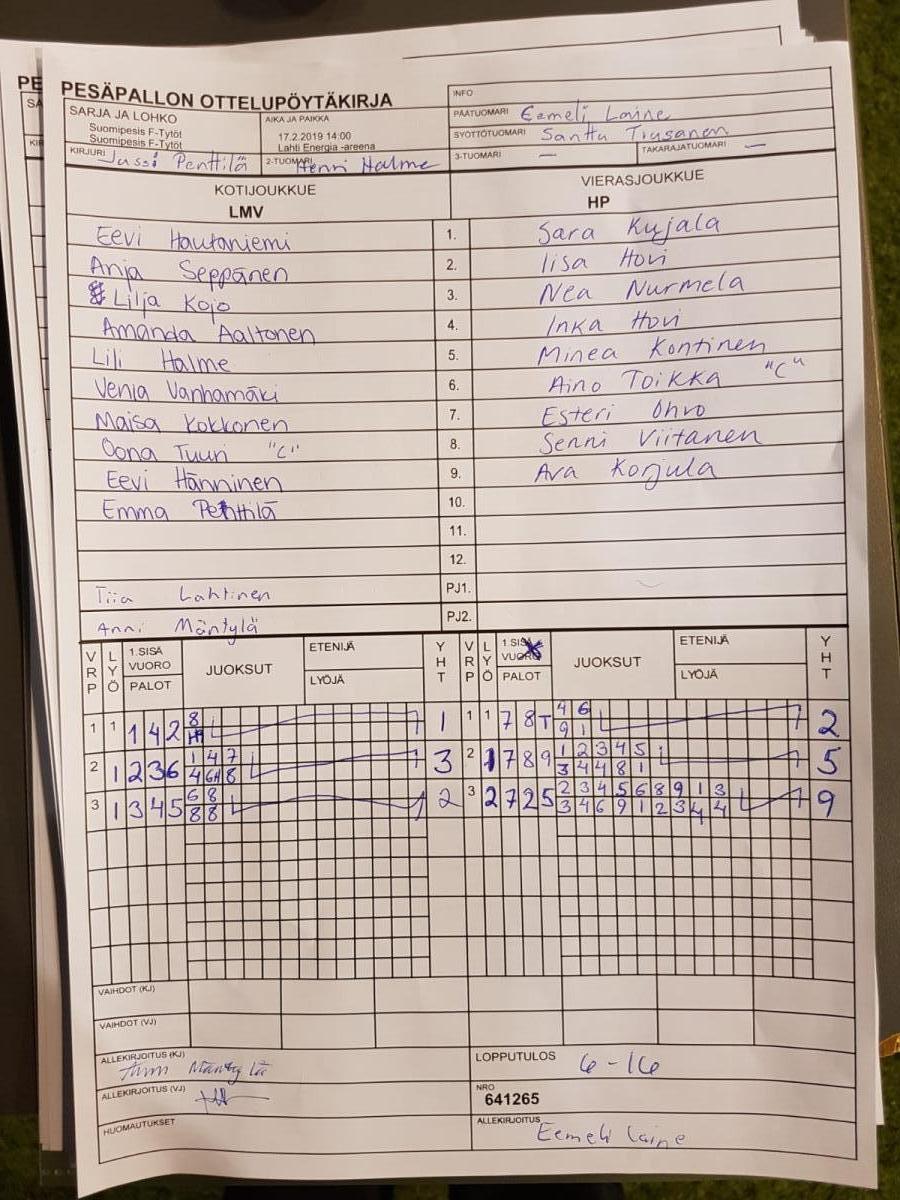 PE
PESÄPALLON OTTELUPÖYTÄKIRJA
INFO
SARJA JA LOHKO
Suomipesis F-Tytöt
Suomipesis F-Tytöt
AIKA JA PAIKKA
17.2.2019 14:00
Lahti Energia -areena
PÄÄTUOMARI Eemeli Laine
SYÖTTÖTUOMARI Santtu Tiusanen
KIRJURI Jussi Penttilä
2-TUOMARI Henri Halme
3-TUOMARI —
TAKARAJATUOMARI —
KOTIJOUKKUE
LMV
VIERASJOUKKUE
HP
Eevi Hautaniemi 1. Sara Kujala
Anja Seppänen 2. Iisa Hovi
Lilja Kojo 3. Nea Nurmela
Amanda Aaltonen 4. Inka Hovi
Lili Halme 5. Minea Kontinen
Venla Vanhamäki 6. Aino Toikka "C"
Maisa Kokkonen 7. Esteri Ohvo
Oona Tuuri "C" 8. Senni Viitanen
Eevi Hänninen 9. Ava Korjula
Emma Penttilä 10.
11.
12.
Tiia Lahtinen PJ1.
Anni Mäntylä PJ2.
VRP LYÖ 1.SISÄ VUORO PALOT JUOKSUT ETENIJÄ LYÖJÄ YHT VRP LYÖ 1.SISÄ VUORO PALOT JUOKSUT ETENIJÄ LYÖJÄ YHT
1 1 1 4 2 8 1 1 1 7 8 T 4 6 2
9 1
2 1 2 3 6 1 4 7 3 2 1 7 8 9 1 2 3 4 5 5
4 6 8 3 4 4 8 1
3 1 3 4 5 6 8 2 3 2 7 2 5 2 3 4 5 6 8 9 1 3 9
8 8 3 4 6 9 1 2 3 4 4
VAIHDOT (KJ)
VAIHDOT (VJ)
ALLEKIRJOITUS (KJ) Anni Mäntylä
LOPPUTULOS 6-16
ALLEKIRJOITUS (VJ)
NRO
641265
HUOMAUTUKSET
ALLEKIRJOITUS Eemeli Laine